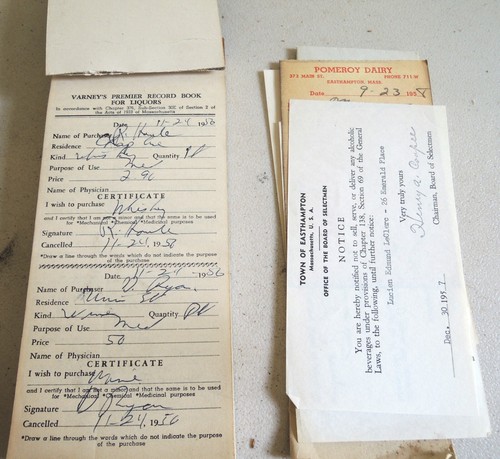 VARNEY'S PREMIER RECORD BOOK
FOR LIQUORS
In accordance with Chapter 376, Sub-Section 30E of Section 2 of
the Acts of 1933 of Massachusetts
Date 11-24 1956
Name of Purchaser
Residence
Kind Quantity
Purpose of Use Med
Price 2.90
Name of Physician
CERTIFICATE
I wish to purchase Whiskey
and I certify that I am not a minor and that the same is to be used
for *Mechanical *Chemical *Medicinal Purposes
Signature
Cancelled 11-24, 1956
*Draw a line through the words which do not indicate the purpose
of the purchase
Date 11-24 1956
Name of Purchaser Ryan
Residence
Kind Quantity
Purpose of Use Med
Price 50
Name of Physician
CERTIFICATE
I wish to purchase Wine
and I certify that I am not a minor and that the same is to be used
for *Mechanical *Chemical *Medicinal Purposes
Signature Ryan
Cancelled 11-24, 1956
*Draw a line through the words which do not indicate the purpose
of the purchase
POMEROY DAIRY
PHONE
EASTHAMPTON, MASS.
Date 9-23 1958
TOWN OF EASTHAMPTON
Massachusetts, U. S. A.
OFFICE OF THE BOARD OF SELECTMEN
NOTICE
You are hereby notified not to sell, serve, or deliver any alcoholic
beverages under provisions of Chapter 138, Section 69 of the General
Laws, to the following, until further notice:
Lucien Edmund LeClerc - 26 Emerald Place
Very truly yours
Henry A.
Chairman, Board of Selectmen
Dec. 30, 1957